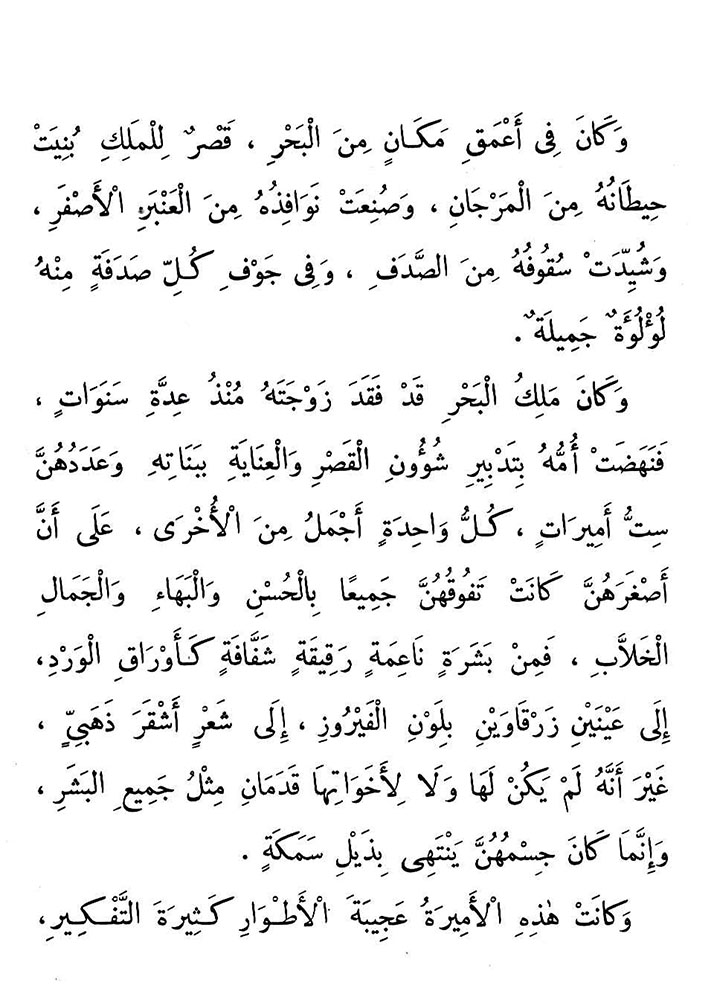 وَكَانَ فِى أَعْمَقِ مَكَانٍ مِنَ الْبَحْرِ ، قَصْرٌ لِلْمَلِكِ بُنِيَتْ
حِيطَانُهُ مِنَ الْمَرْجَانِ ، وَصُنِعَتْ نَوَافِذُهُ مِنَ الْعَنْبَرِ الْأَصْفَرِ ،
وَشُيِّدَتْ سُقُوفُهُ مِنَ الصَّدَفِ ، وَفِى جَوْفِ كُلِّ صَدَفَةٍ مِنْهُ
لُؤْلُؤَةٌ جَمِيلَةٌ .
وَكَانَ مَلِكُ الْبَحْرِ قَدْ فَقَدَ زَوْجَتَهُ مُنْذُ عِدَّةِ سَنَوَاتٍ ،
فَنَهَضَتْ أُمُّهُ بِتَدْبِيرِ شُؤُونِ الْقَصْرِ وَالْعِنَايَةِ بِبَنَاتِهِ وَعَدَدُهُنَّ
سِتُّ أَمِيرَاتٍ ، كُلُّ وَاحِدَةٍ أَجْمَلُ مِنَ الْأُخْرَى ، عَلَى أَنَّ
أَصْغَرَهُنَّ كَانَتْ تَفُوقُهُنَّ جَمِيعًا بِالْحُسْنِ وَالْبَهَاءِ وَالْجَمَالِ
الْخَلاَّبِ ، فَمِنْ بَشَرَةٍ نَاعِمَةٍ رَقِيقَةٍ شَفَّافَةٍ كَأَوْرَاقِ الْوَرْدِ،
إِلَى عَيْنَيْنِ زَرْقَاوَيْنِ بِلَوْنِ الْفَيْرُوزِ ، إِلَى شَعْرٍ أَشْقَرَ ذَهَبِىٍّ ،
غَيْرَ أَنَّهُ لَمْ يَكُنْ لَهَا وَلَا لِأَخَوَاتِهَا قَدَمَانِ مِثْلُ جَمِيعِ البَشَرِ ،
وَإِنَّمَا كَانَ جِسْمُهُنَّ يَنْتَهِى بِذَيْلِ سَمَكَةٍ .
وَكَانَتْ هٰذِهِ الْأَمِيرَةُ عَجِيبَةَ الْأَطْوَارِ كَثِيرَةَ التَّفْكِيرِ،